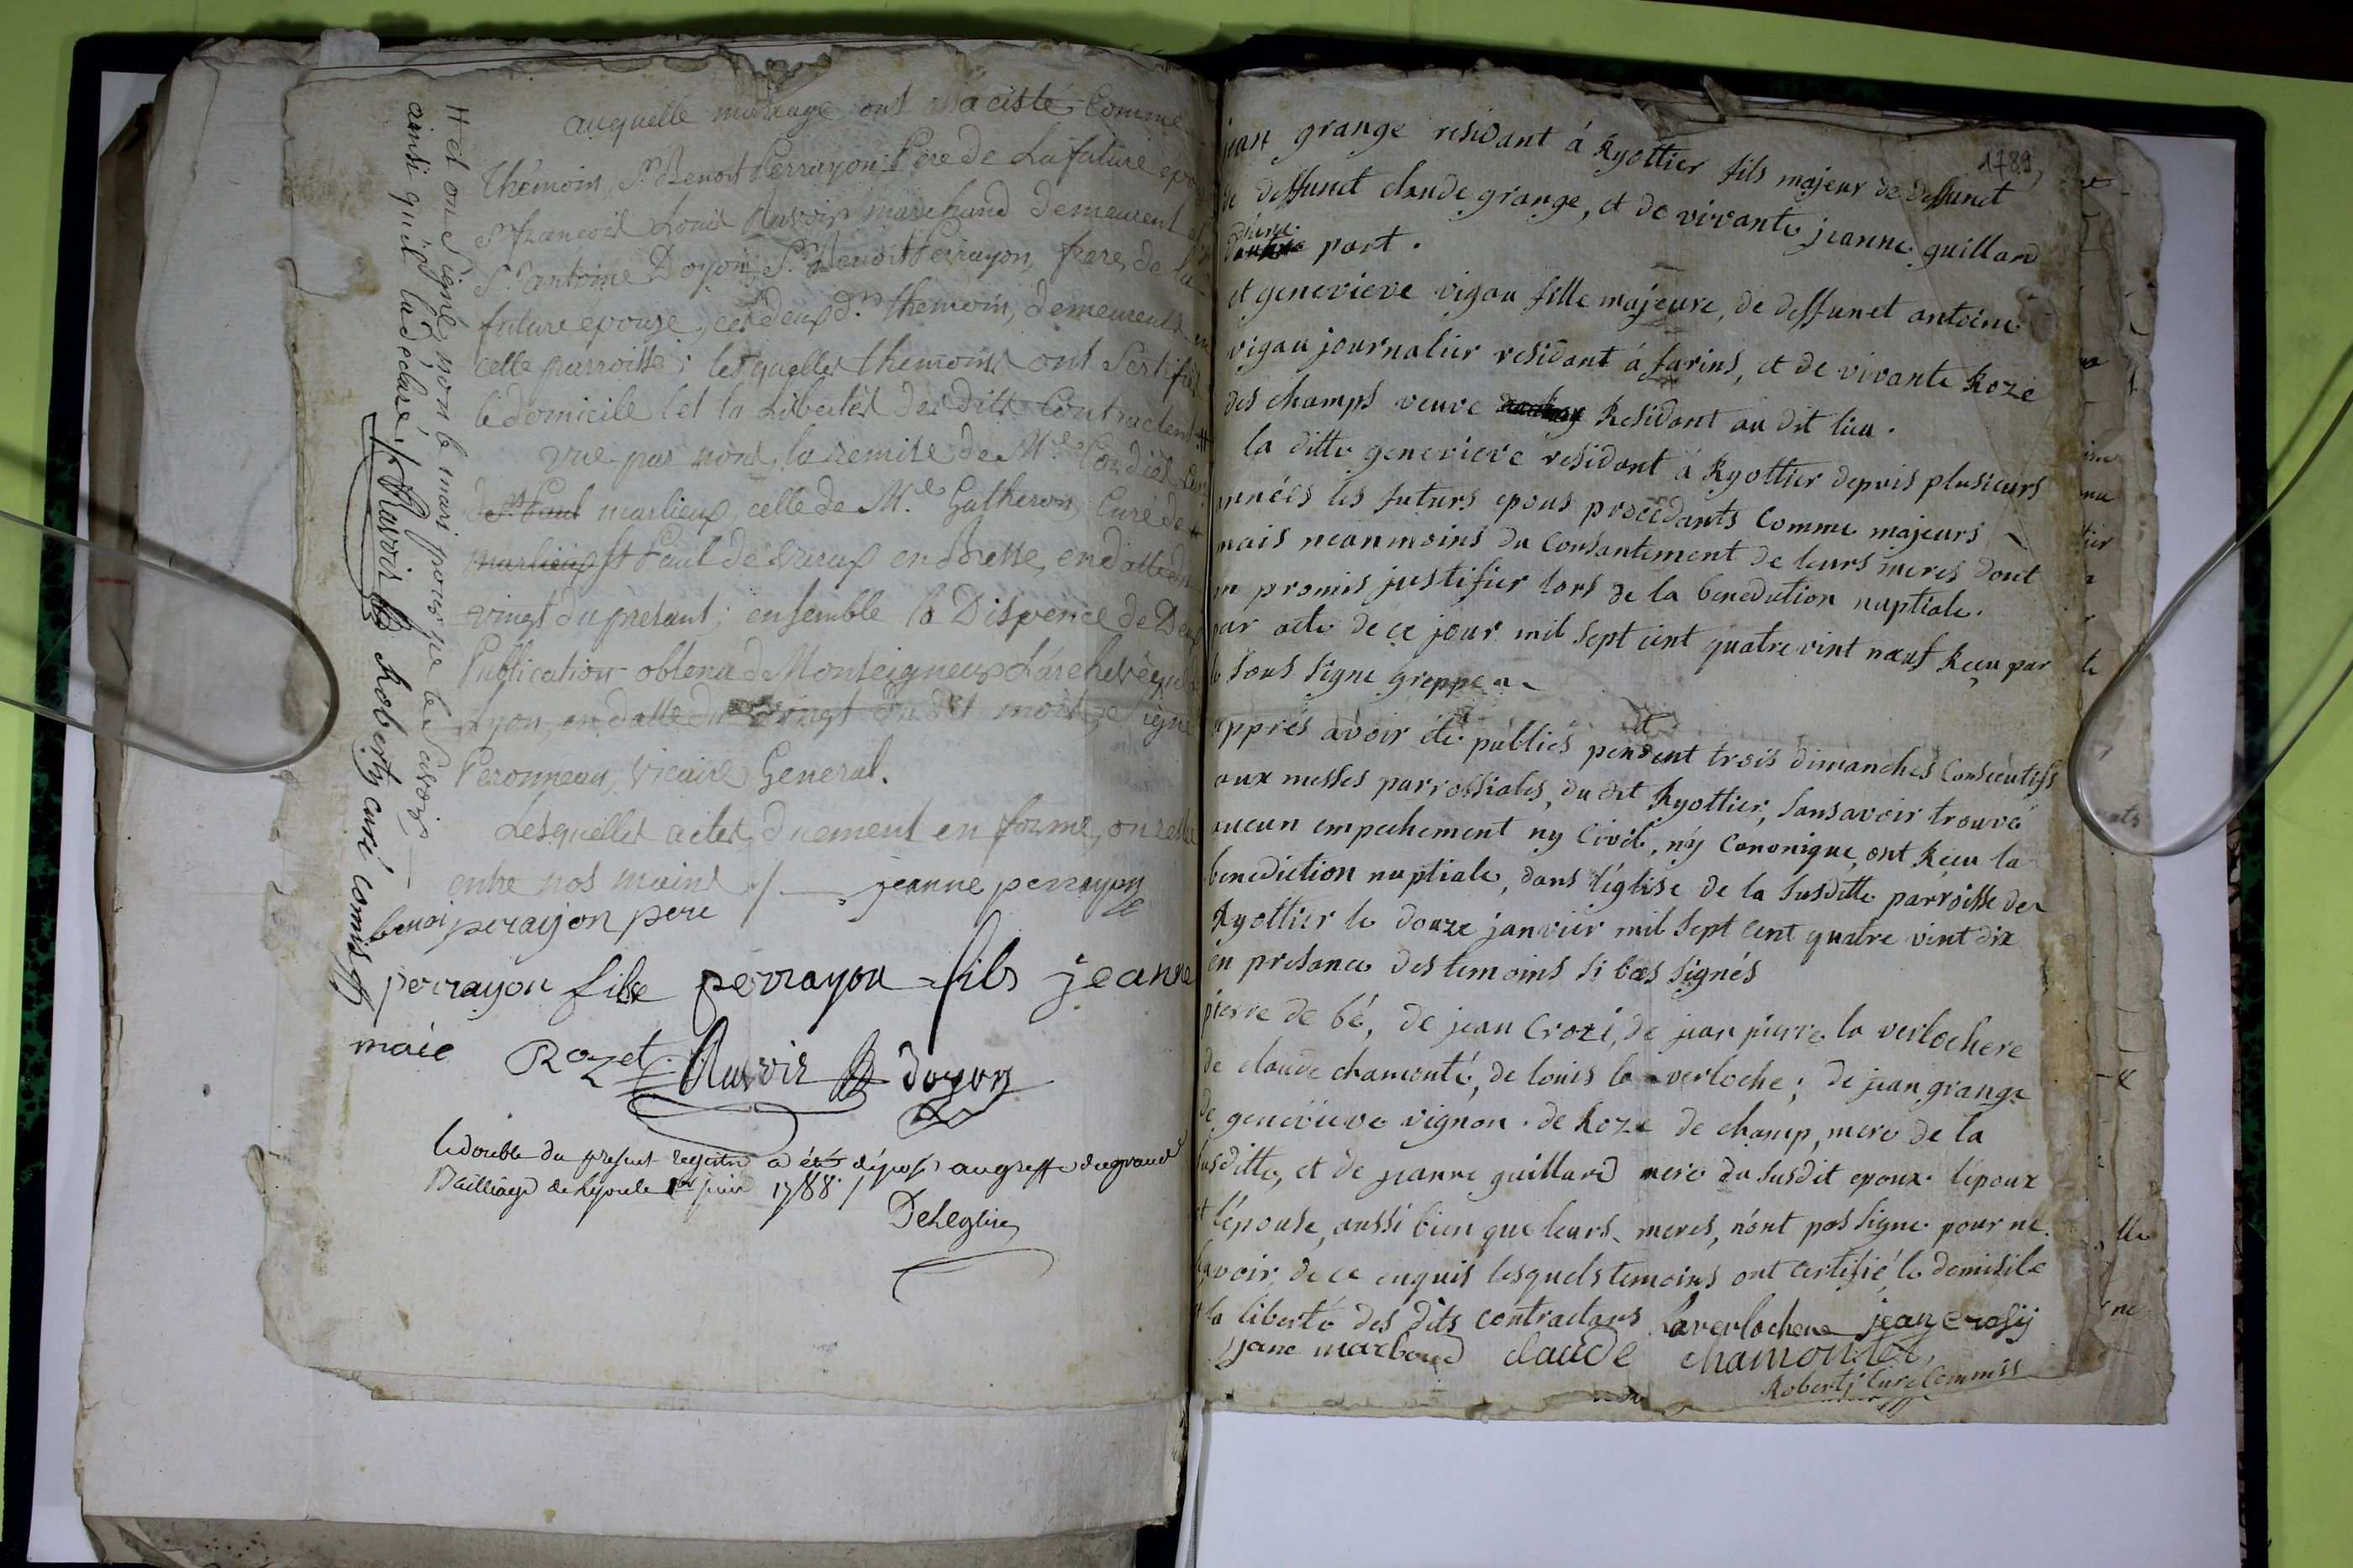 auquelle mariage ont aciste Comme
Thémoins, Sr. Benoit Perrayon Pere de La future epouse
Sr. francois Louis Ravoir marchand demeurent a
Sr. antoine Doyon, Sr. Benoit Perrayon, frere, de la
future epouse, ces deux dr. themoins, demeurents en
cette parroisse; lesquelles themoins ont Sertifié
le domicile et la Libertés des dits Contractents #
vue par nous, la remise de Mr. Condiés Curé
de St. Paul marlieux, celle de Mr. Gatheron Curé de
marlieux St Paul de Varax en Bresse, en datte du
vingt du présant; ensemble la Dispence de Deux
Publication obtenu de Monseigneur L'archevéque de
Lyon, en datte du vingt du dit mois, Signé
Peronneau, vicaire General.
Lesquelles actes, duement en forme, on resté
entre nos mains ./. jeanne perrayon
benoi peraijon pere
perrayon fils perrayon fils jeanne
maée Rozet Ravoir doyon
# et on Signé, non le mari pour ne le Savoir
ainsi qu'il la déclaré, f Ravoir Roberty curé commis
le double du present registre a été déposé au greffe du grand
Bailliage de Lyon le 1er juin 1788 /
Deleglise
1789
jean grange residant á Ryottier fils majeur de deffunct
de deffunct claude grange, et de vivante jeanne guillard
d'une
d'autre part.
et genevieve vigau fille majeure, de deffunct antoine
vigau journalier residant á farins, et de vivante Roze
des champs veuve Residant au dit lieu.
la ditte genevieve residant á Ryottier depuis plusieurs
années les futurs epous procédants comme majeurs
mais neanmoins du consantement de leurs meres dont
on promis justifier lors de la benediction nuptiale.
par acte de ce jour mil sept cent quatre vint nœuf Reçu par
le sous signe greppe
apprés avoir été publiés pendent trois dimanches consécutifs
aux messes parrossiales, du dit Ryottier, sans avoir trouvé
aucun empechement ny Civil, ny Canonique, ont Reçu la
benediction nuptiale, dans l'église de la susditte parroisse de
Ryottier le douze janvier mil sept cent quatre vint dix
en presance des temoins si bas signés
pierre de bé, de jean Crozi, de jean pierre la verlochere
de claude chamonté, de louis la verloche; de jean grange
de genevieve vignon. de Roze de champ, mere de la
susditte, et de jeanne guillard mere du susdit epoux. l'epoux
et l'épouse, aussi bien que leurs meres, n'ont pas signe pour ne
savoir, de ce enquis lesquels temoins ont certifié le domisile
et la liberté des dits contractans Laverlochere jean crosij
jane marboud claude chamontet,
Robertj Curé Commis